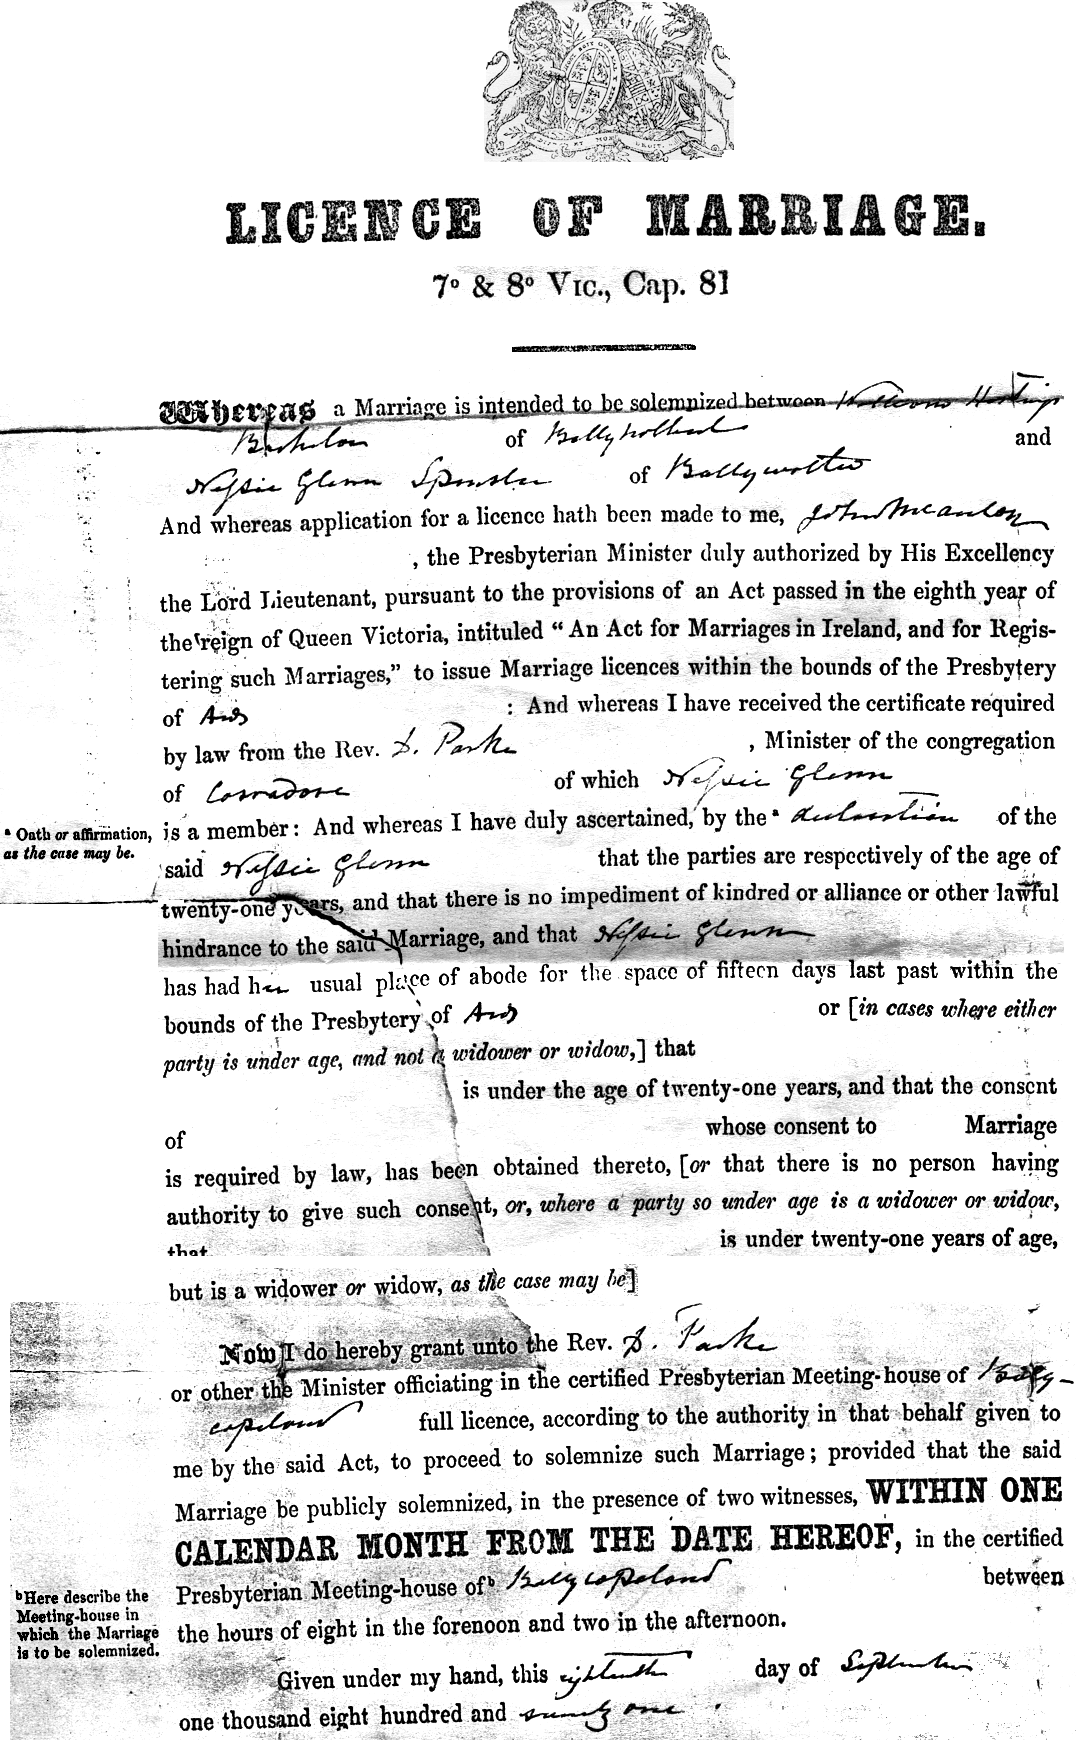 LICENCE OF MARRIAGE.
7º & 8º VIC., Cap. 81
Whereas a Marriage is intended to be solemnized between William Hastings
Bachelor of Ballyholland and
Nessie Glenn Spinster of Ballywalter
And whereas application for a licence hath been made to me, John McAuley
, the Presbyterian Minister duly authorized by His Excellency
the Lord Lieutenant, pursuant to the provisions of an Act passed in the eighth year of
the reign of Queen Victoria, intituled “An Act for Marriages in Ireland, and for Regis-
tering such Marriages,” to issue Marriage licences within the bounds of the Presbytery
of Ards : And whereas I have received the certificate required
by law from the Rev. D. Parke , Minister of the congregation
of Carradore of which Nessie Glenn
ª Oath or affirmation, is a member: And whereas I have duly ascertained, by the ª declaration of the
as the case may be. said Nessie Glenn that the parties are respectively of the age of
twenty-one years, and that there is no impediment of kindred or alliance or other lawful
hindrance to the said Marriage, and that Nessie Glenn
has had her usual place of abode for the space of fifteen days last past within the
bounds of the Presbytery of Ards or [in cases where either
party is under age, and not a widower or widow,] that
is under the age of twenty-one years, and that the consent
of whose consent to Marriage
is required by law, has been obtained thereto, [or that there is no person having
authority to give such consent, or, where a party so under age is a widower or widow,
that is under twenty-one years of age,
but is a widower or widow, as the case may be]
Now I do hereby grant unto the Rev. D. Parke
or other the Minister officiating in the certified Presbyterian Meeting-house of Bally-
copeland full licence, according to the authority in that behalf given to
me by the said Act, to proceed to solemnize such Marriage; provided that the said
Marriage be publicly solemnized, in the presence of two witnesses, WITHIN ONE
CALENDAR MONTH FROM THE DATE HEREOF, in the certified
Presbyterian Meeting-house of ᵇ Ballycopeland between
the hours of eight in the forenoon and two in the afternoon.
ᵇ Here describe the
Meeting-house in
which the Marriage
is to be solemnized.
Given under my hand, this eighteenth day of September
one thousand eight hundred and seventy one.